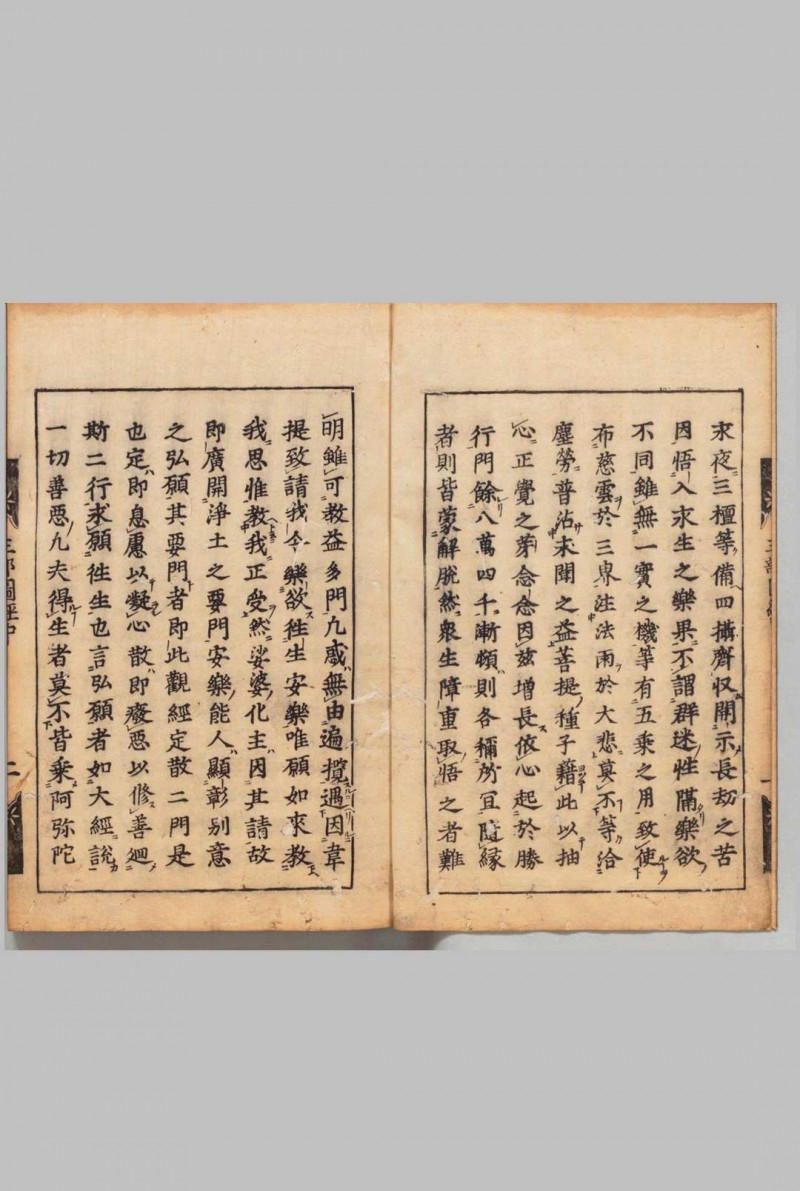 求夜三檀等備四攝齊収開示長劫之苦
因悟入求生之樂果不謂群迷性隔樂欲
不同雖無一實之機等有五乘之用致使
布慈雲於三界注法雨於大悲莫不等洽
塵勞普沾未聞之益菩提種子藉此以抽
心正覺之芽念念因茲增長依心起於勝
行門餘八萬四千漸頓則各稱所宜隨縁
者則皆蒙解脫然衆生障重取悟之者難
明雖可教益多門凡惑無由遍攬遇因韋
提致請我今樂欲徃生安樂唯願如來教
我思惟教我正受然娑婆化主因其請故
即廣開淨土之要門安樂能人顯彰別意
之弘願其要門者即此觀經定散二門是
也定即息慮以凝心散即廢惡以修善廻
斯二行求願徃生也言弘願者如大經說
一切善惡凡夫得生者莫不皆乘阿弥陀
二